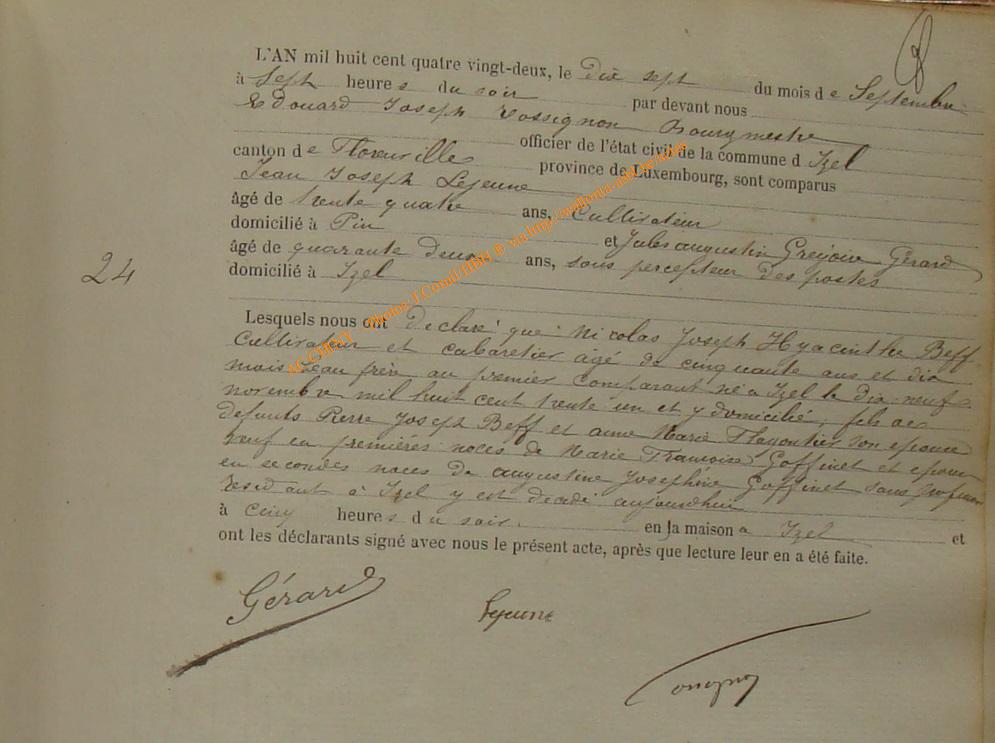 L'AN mil huit cent quatre vingt-deux, le dix sept du mois de Septembre
à Sept heures du soir par devant nous
Edouard Joseph Rossignon Bourgmestre
officier de l'état civil de la commune d Izel
canton de Florenville province de Luxembourg, sont comparus
Jean Joseph Lejeune
âgé de trente quatre ans, Cultivateur
domicilié à Pin et Jules augustin Grégoire Gérard
âgé de quarante deux ans, sous percepteur des postes
domicilié à Izel
24
Lesquels nous ont declaré que Nicolas Joseph Hyacinthe Beff
Cultivateur et cabaretier agé de cinquante ans et dix
mois beau frère au premier comparant né à Izel le dix neuf
novembre mil huit cent trente un et y domicilié, fils des
defunts Pierre Joseph Beff et anne Marie son epouse
veuf en premières noces de Marie Françoise Goffinet et epoux
en secondes noces de augustine Joséphine Goffinet sans profession
residant à Izel y est decedé aujourdhui
à cinq heures du soir. en la maison a Izel et
ont les déclarants signé avec nous le présent acte, après que lecture leur en a été faite.
Gérard
Lejeune
Rossignon